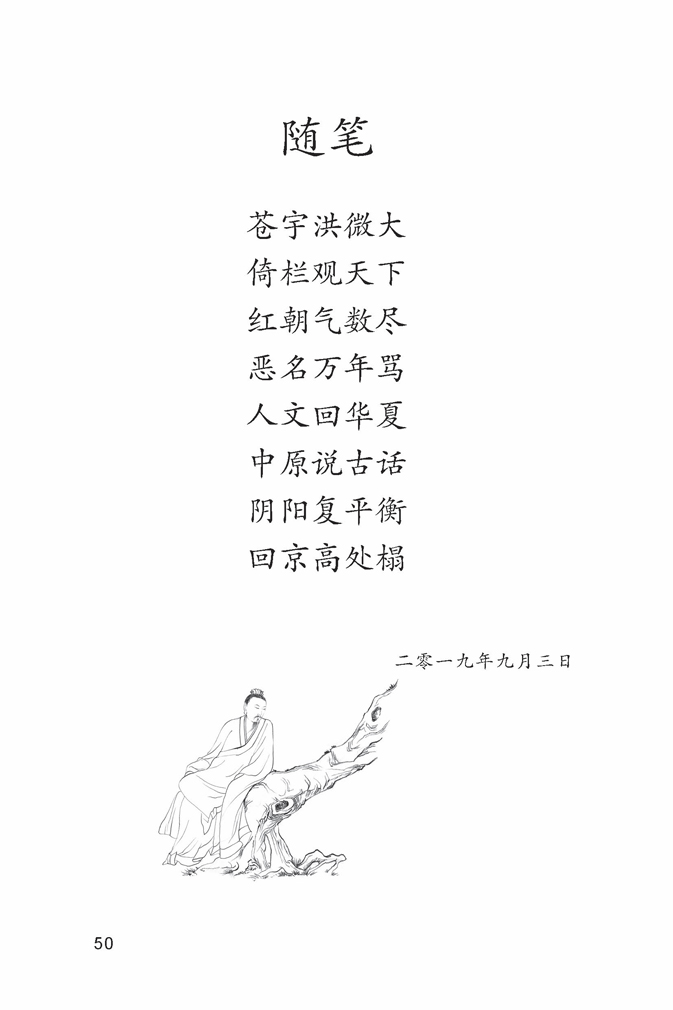 随笔
苍宇洪微大
倚栏观天下
红朝气数尽
恶名万年骂
人文回华夏
中原说古话
阴阳复平衡
回京高处榻
二零一九年九月三日
50